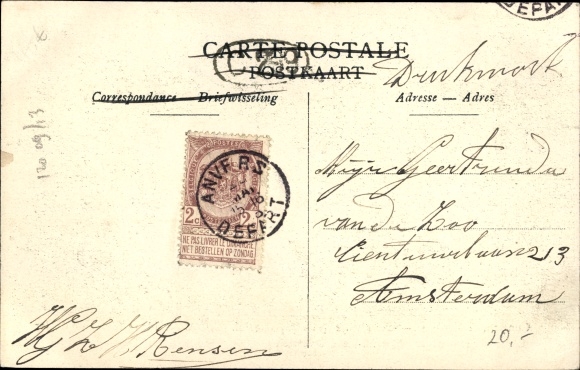 DEPART
CARTE POSTALE
POSTKAART
Drukwerk
Correspondance — Briefwisseling
Adresse — Adres
ANVERS
DEPART
2 2
NE PAS LIVRER LE DIMANCHE
NIET BESTELLEN OP ZONDAG
Mejr Geertruida
van de Loo
23
Amsterdam
Rensen
20,-